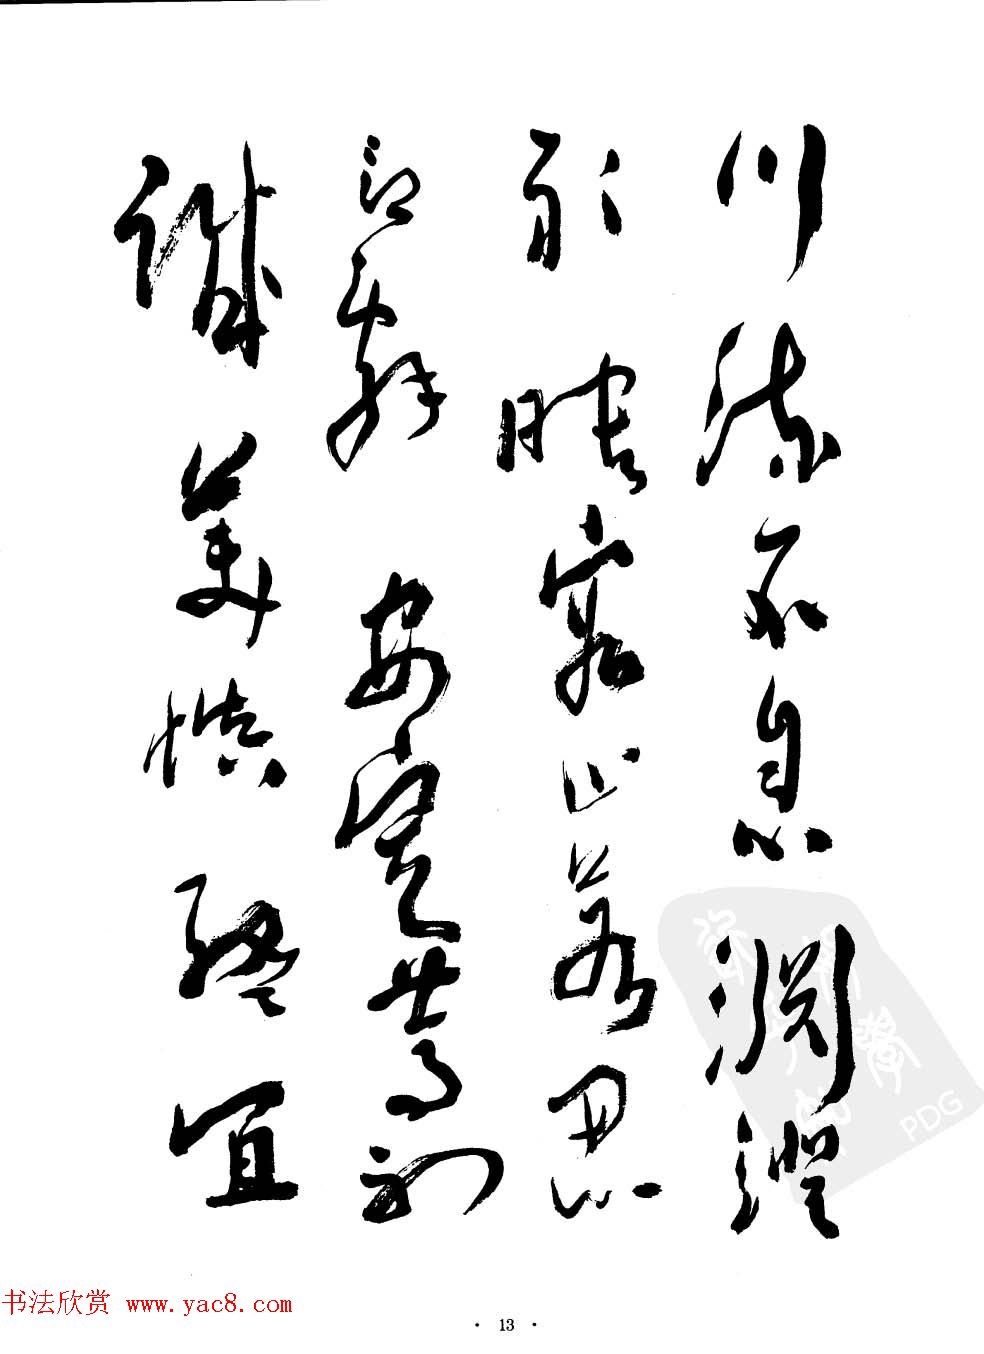 川流不息淵澄
取暎容止若思
言辭安定篤初
誠美慎終宜
PDG
书法欣赏 www.yac8.com
· 13 ·